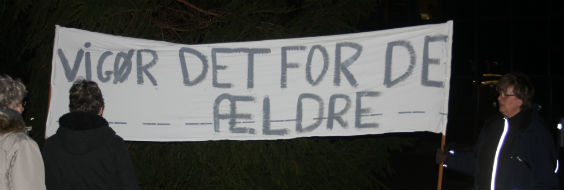 ViGØR DET FOR DE
ÆLDRE